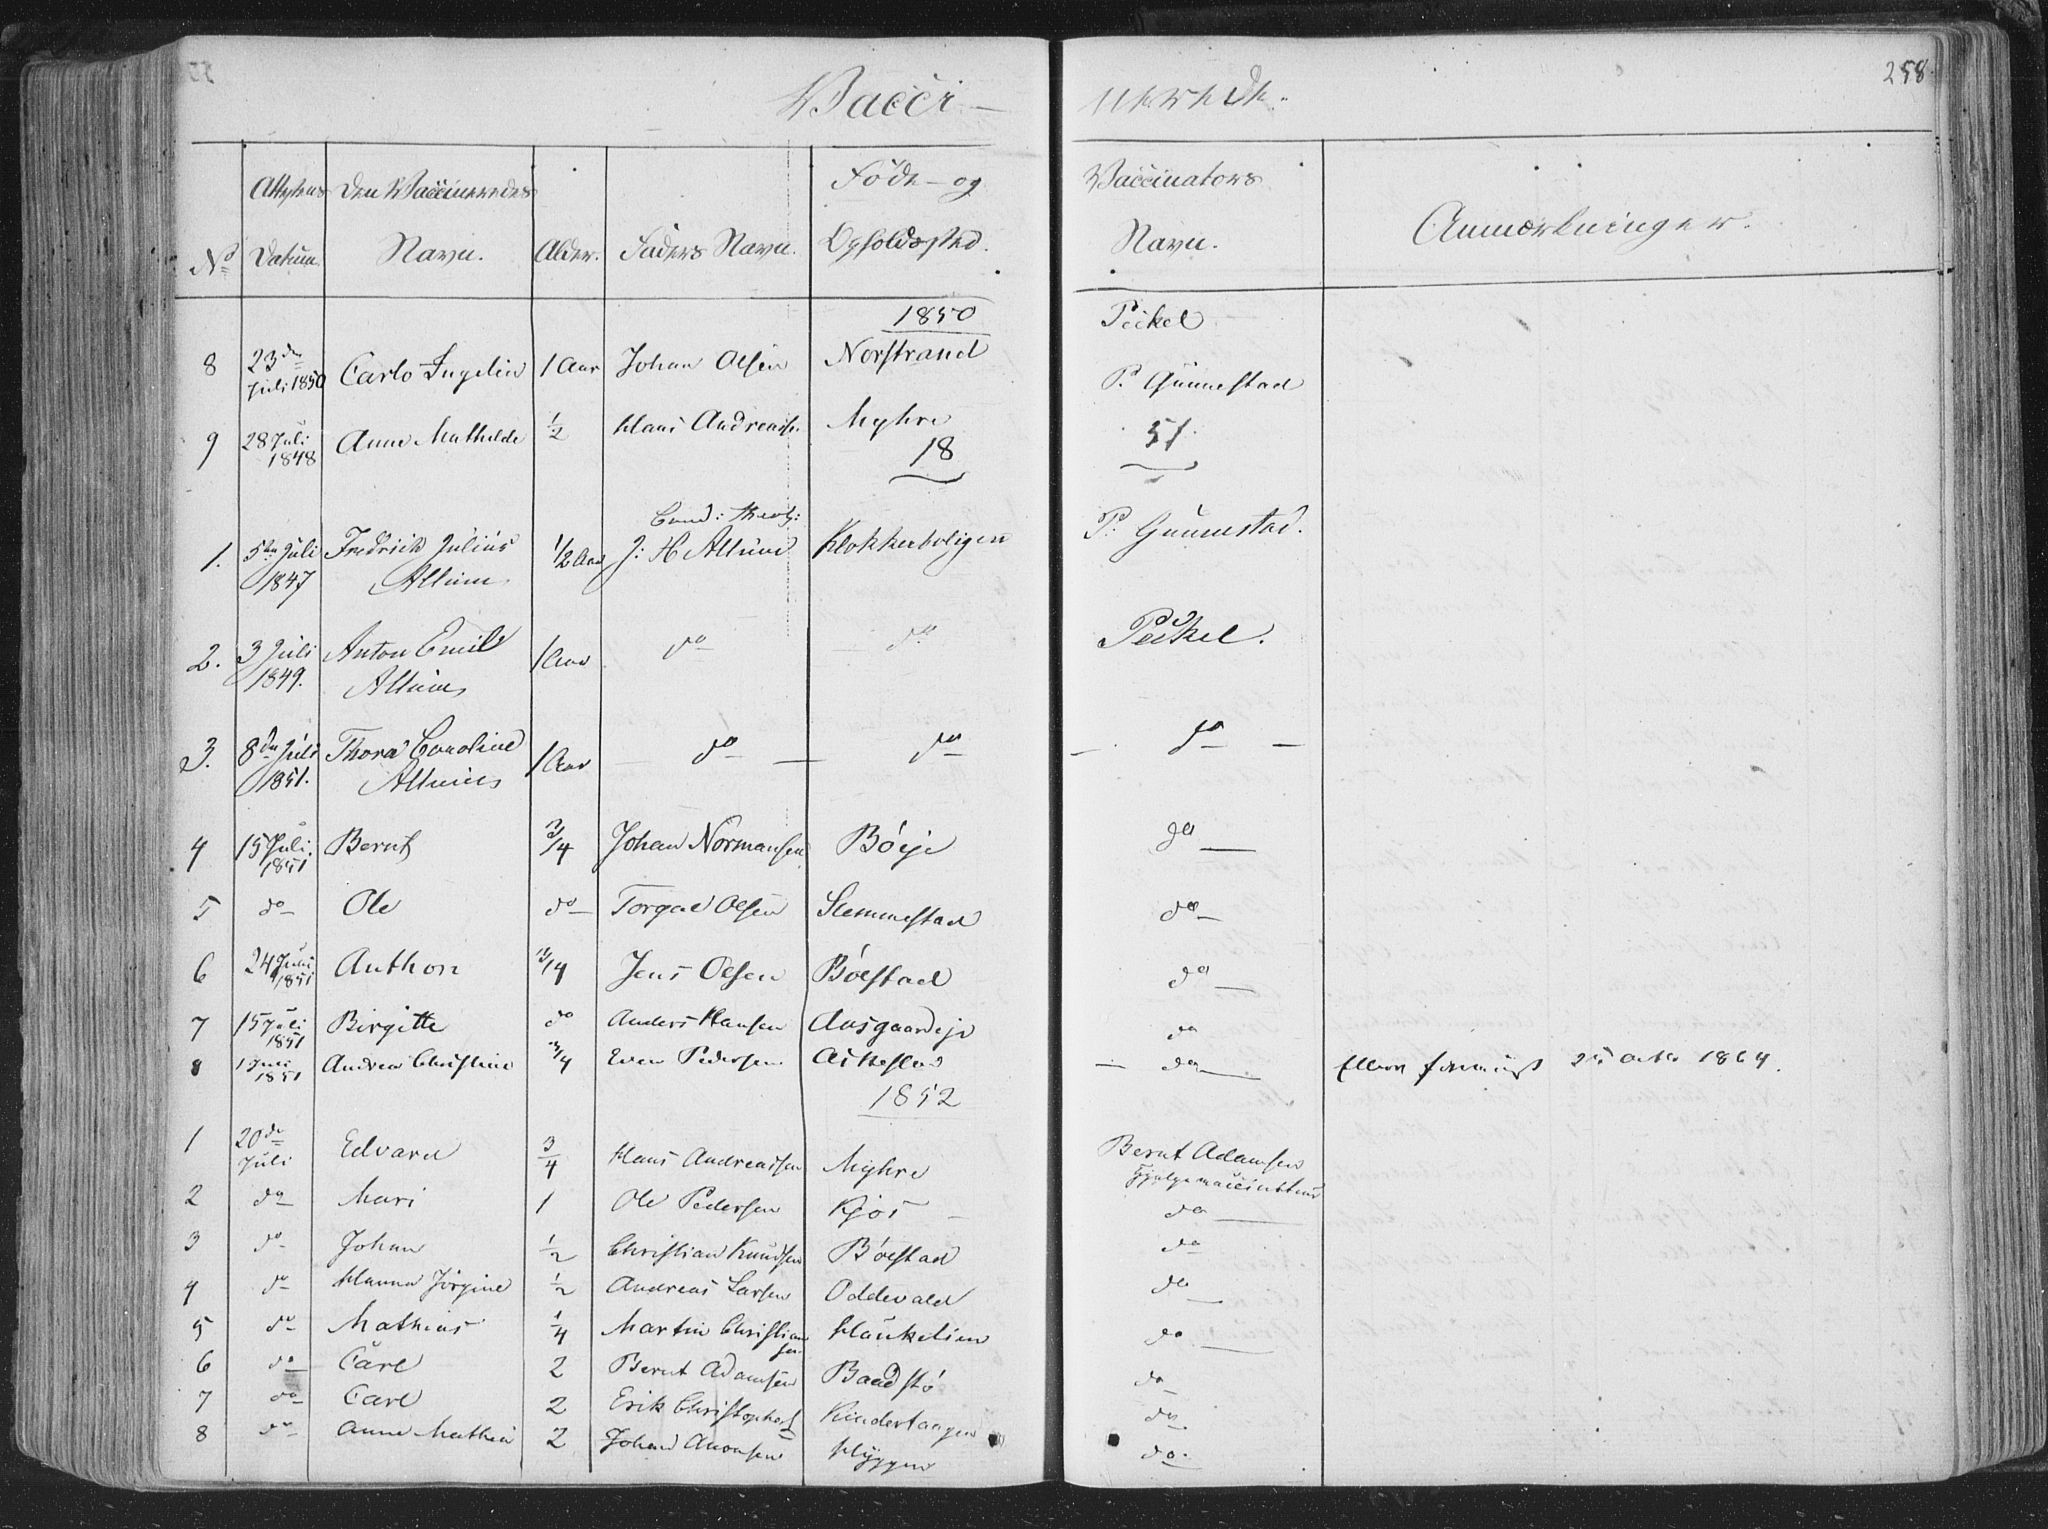 Vacci- nerede.
258.
No Attestens Datum. Den Vaccineredes Navn. Alder. Faders Navn. Føde- og Opholdssted. Vaccinators Navn. Anmærkninger.
1850
8 23de Juli 1850 Carlo Ingelin 1 Aar Johan Olsen Norstrand Peckel
P. Gunnestad
9 28 Juli 1848 Anne Mathilde 1/2 Hans Andreasse Myhre
18 51
1. 5te Juli 1847 Fredrick Julius Allum 1/2 Aar Cand: theol: J: H Allum Klokkerboligen P: Gunnestad.
2. 3 Juli 1849. Anton Emil Allum 1 Aar do do Peckel.
3. 8de Juli 1851. Thora Caroline Allum 1 Aar - do - do - do -
4 15 Juli 1851 Bernt 3/4 Johan Normansen Böeje do
5 do Ole do Torgal Olsen Slemmestad do
6 24 Juli 1851 Anthon 3/4 Jens Olsen Böestad do
7 15 Juli 1851 Birgitte do Anders Hansen Aasgaardeje do
8 1 Juli 1851 Andrea Christine 3/4 Even Pedersen Askestad - do 25 octbr 1864.
1852
1 20de Juli Edvard 3/4 Hans Andreassen Myhre Bernt Adamsen
2 do Mari 1 Ole Pedersen Kjøs - do
3 do Johan 1/2 Christian Knudsen Böestad do
4 do Hanna Jörgine 1/2 Andreas Larsen Oddevald do
5 do Mathias 1/4 Martin Christiansen Haukelien do
6 do Carl 2 Bernt Adamsen Baadstö do
7 do Carl 2 Erik Christophers Kinnertangen do
8 do Anne Mathea 2 Johan Amonsen Hyggen do.